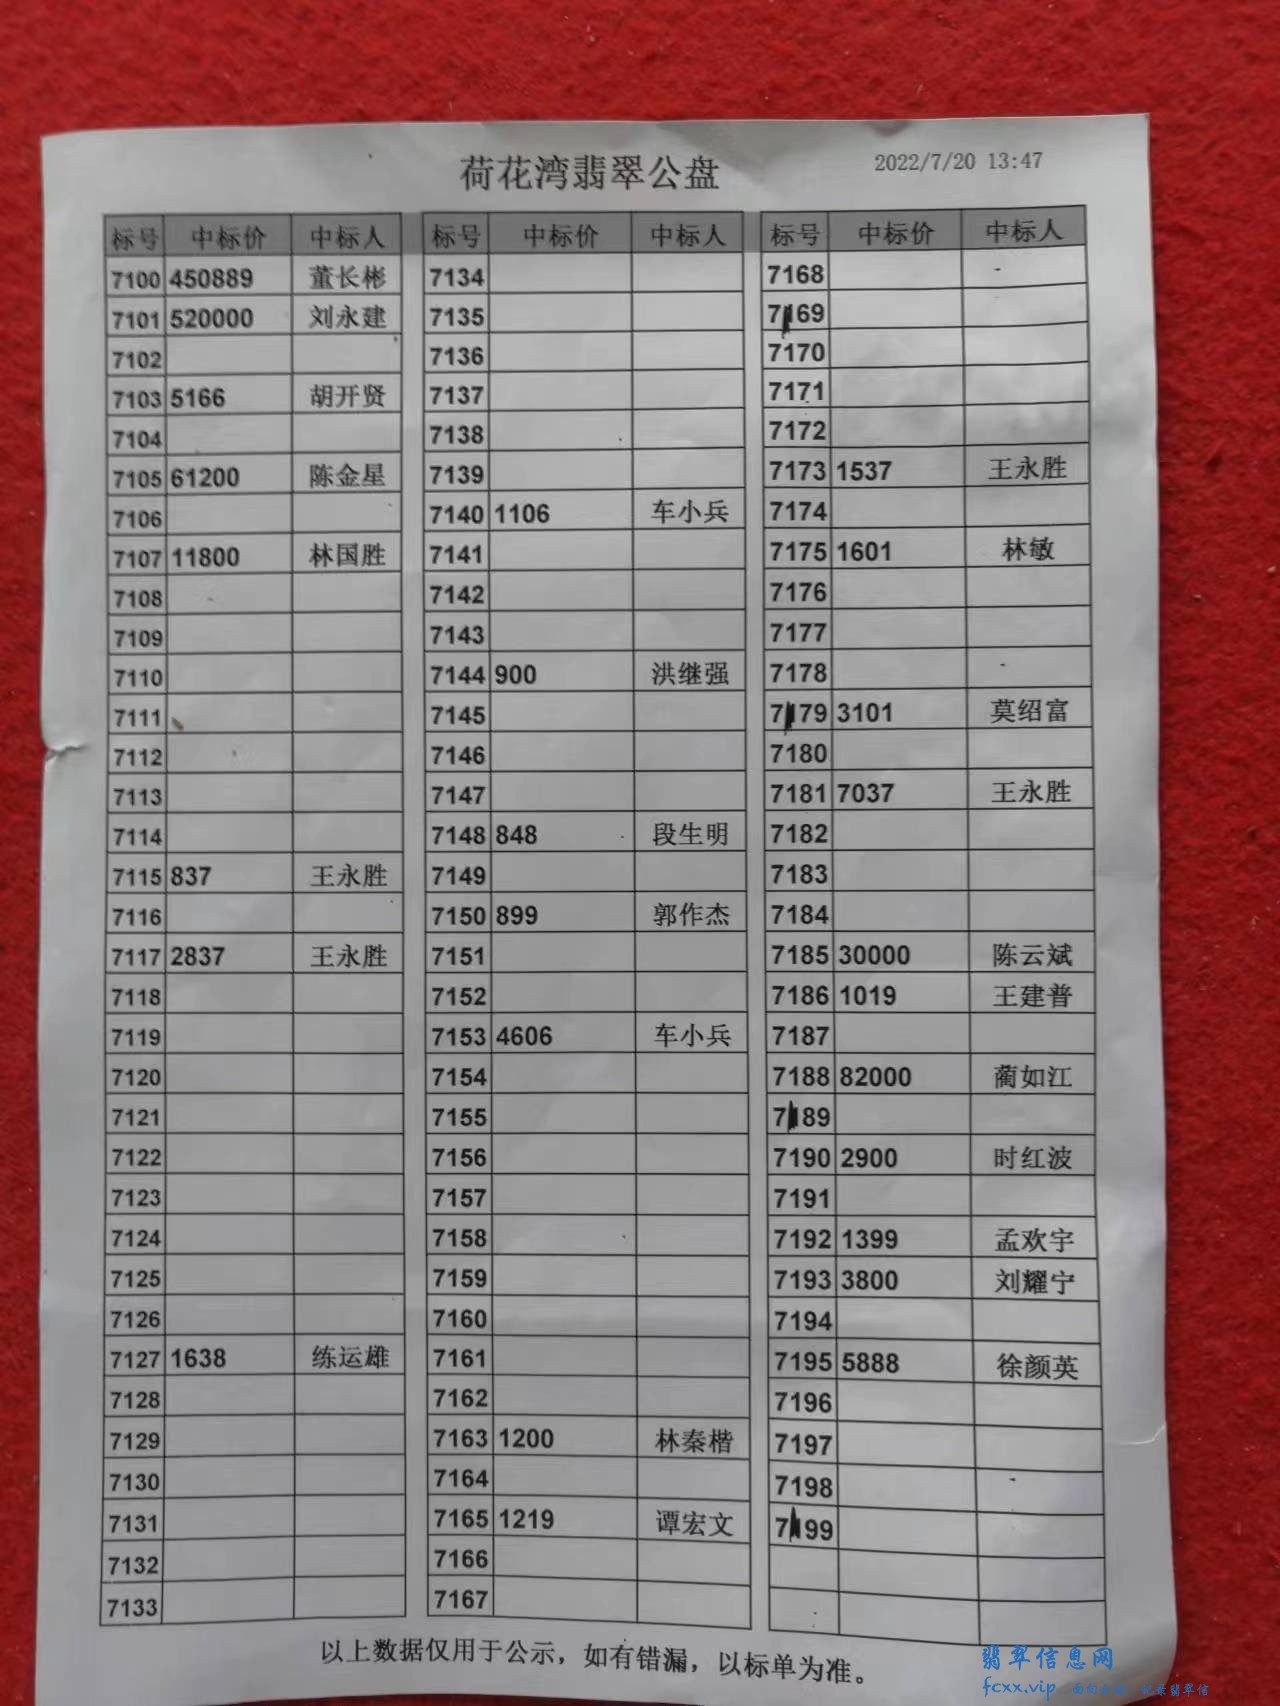 荷花湾翡翠公盘
2022/7/20 13:47
标号 中标价 中标人 标号 中标价 中标人 标号 中标价 中标人
7100 450889 董长彬 7134 7168
7101 520000 刘永建 7135 7169
7102 7136 7170
7103 5166 胡开贤 7137 7171
7104 7138 7172
7105 61200 陈金星 7139 7173 1537 王永胜
7106 7140 1106 车小兵 7174
7107 11800 林国胜 7141 7175 1601 林敏
7108 7142 7176
7109 7143 7177
7110 7144 900 洪继强 7178
7111 7145 7179 3101 莫绍富
7112 7146 7180
7113 7147 7181 7037 王永胜
7114 7148 848 段生明 7182
7115 837 王永胜 7149 7183
7116 7150 899 郭作杰 7184
7117 2837 王永胜 7151 7185 30000 陈云斌
7118 7152 7186 1019 王建普
7119 7153 4606 车小兵 7187
7120 7154 7188 82000 蔺如江
7121 7155 7189
7122 7156 7190 2900 时红波
7123 7157 7191
7124 7158 7192 1399 孟欢宇
7125 7159 7193 3800 刘耀宁
7126 7160 7194
7127 1638 练运雄 7161 7195 5888 徐颜英
7128 7162 7196
7129 7163 1200 林秦楷 7197
7130 7164 7198
7131 7165 1219 谭宏文 7199
7132 7166
7133 7167
以上数据仅用于公示，如有错漏，以标单为准。
翡翠信息网
fcxx.vip